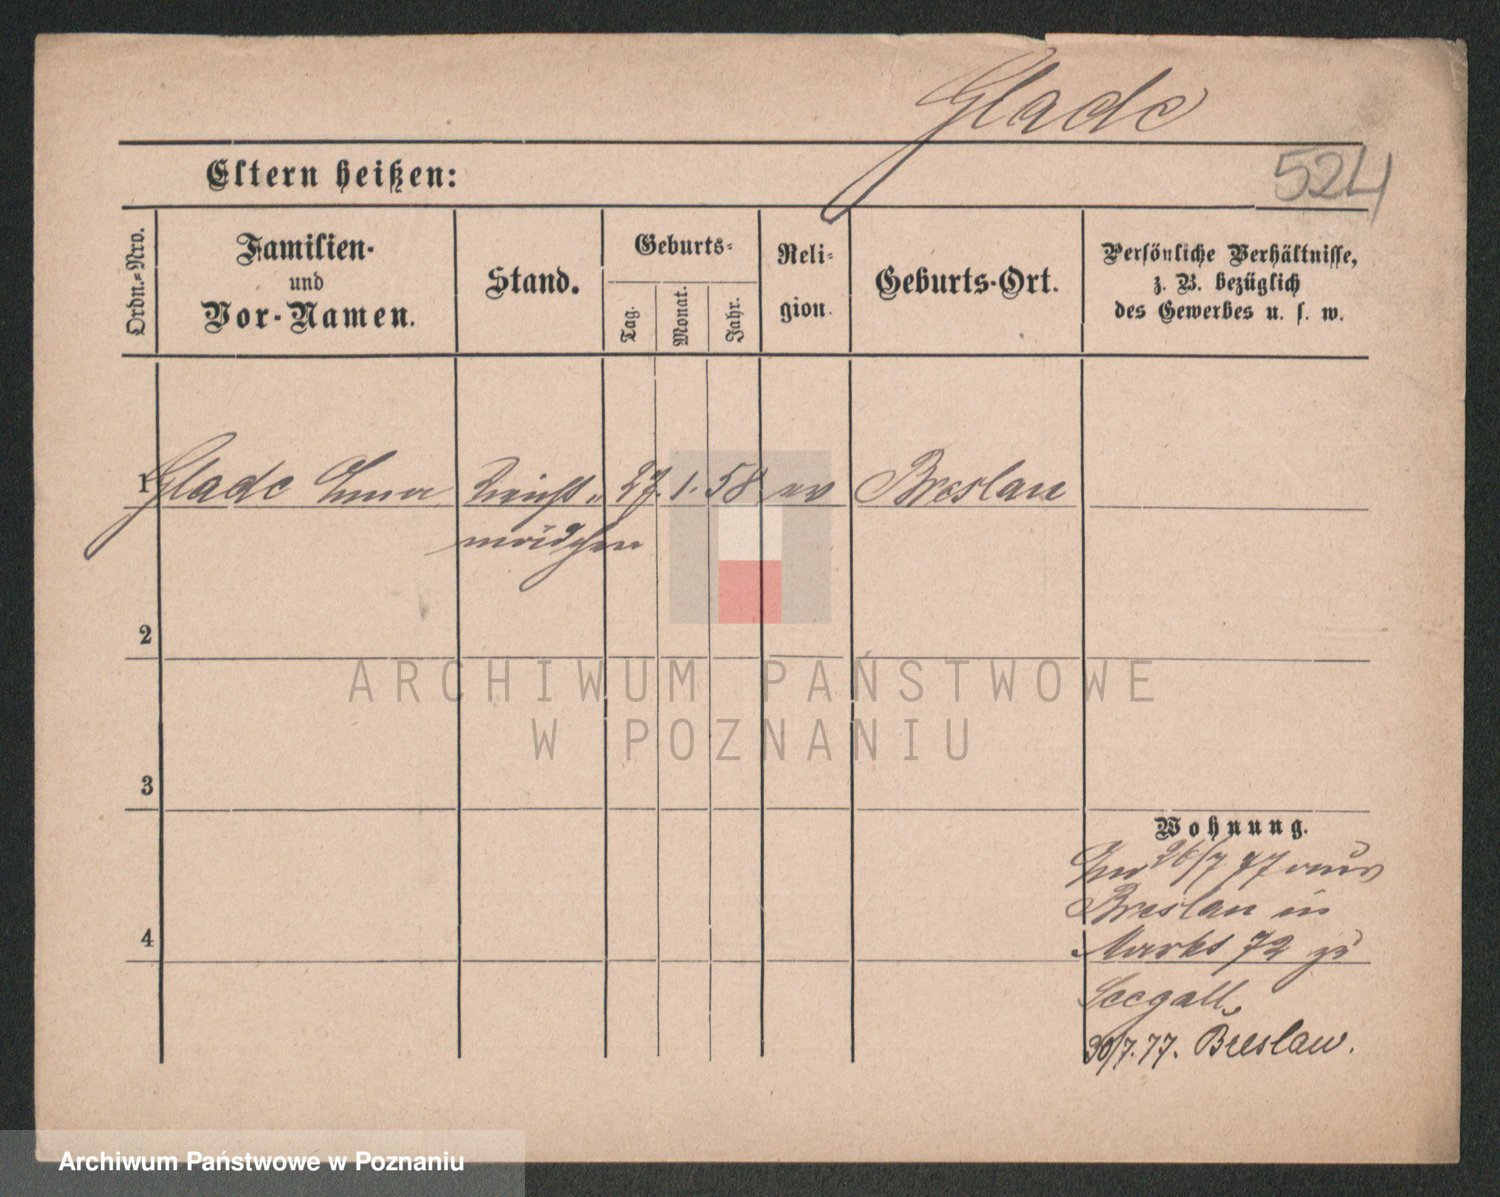 Glade
Eltern heißen:
524
Ordn.-Nro.
Familien-
und
Vor-Namen.
Stand.
Geburts-
Tag.
Monat.
Jahr.
Reli-
gion.
Geburts-Ort.
Persönliche Verhältnisse,
z. B. bezüglich
des Gewerbes u. s. w.
1 Glade Anna Dienst- 27. 1. 58 ev Breslau
mädchen
2
ARCHIWUM PAŃSTWOWE
W POZNANIU
3
Wohnung.
26/7 77 aus
Breslau in
Markt 72 zu
Seegall.
4
30/7. 77. Breslau.
Archiwum Państwowe w Poznaniu